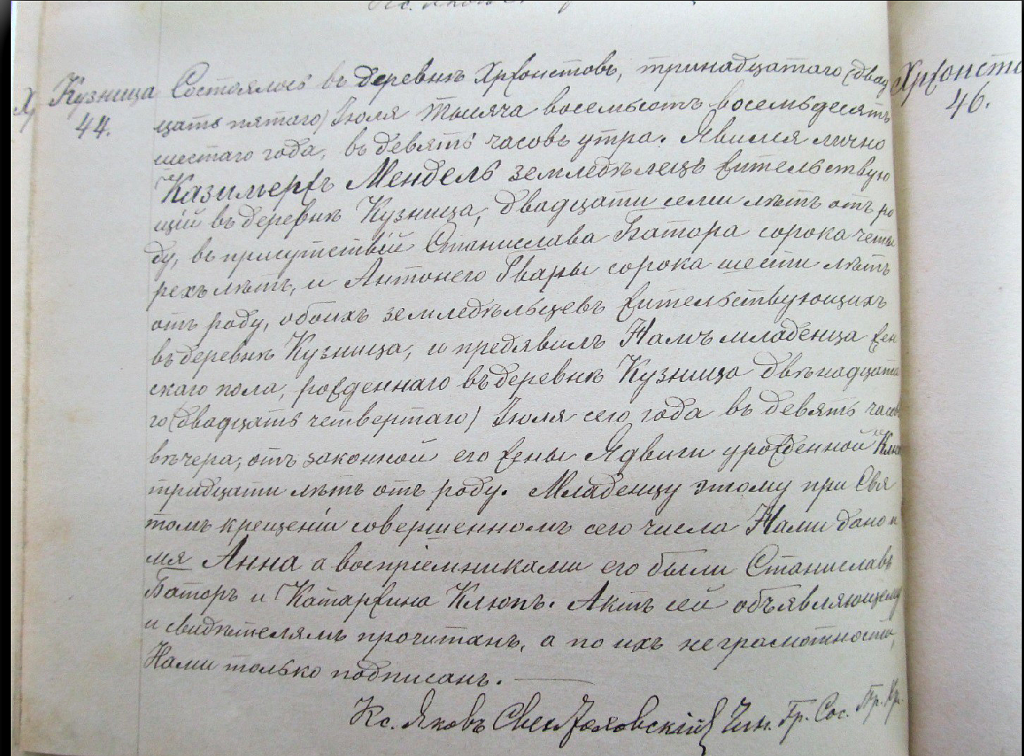 Кс. Яковъ
Кузница
44.
Состоялось въ деревнѣ Хржонстовѣ, тринадцатаго (двад
цать пятаго) Іюля тысяча восемьсотъ восемьдесятъ
шестаго года, въ девять часовъ утра. Явился лично
Казимержъ Мендель земледѣлецъ жительствую
щій въ деревнѣ Кузница, двадцати семи лѣтъ отъ ро
ду, въ присутствіи Станислава Батора сорока четы
рехъ лѣтъ, и Антонего Гвары сорока шести лѣтъ
отъ роду, обоихъ земледѣльцевъ жительствующихъ
въ деревнѣ Кузница, и предявилъ Намъ младенца жен
скаго пола, рожденнаго въ деревнѣ Кузница двѣнадцата
го (двадцать четвертаго) Іюля сего года въ девять часов
вѣчера, отъ законной его жены Ядвиги урожденной
тридцати лѣтъ отъ роду. Младенцу этому при Свя
томъ крещеніи совершенномъ сего числа Нами дано и
мя Анна а воспріемниками его были Станиславъ
Баторъ и Катаржина Клюпъ. Актъ сей объявляющему
и свидѣтелямъ прочитанъ, а по ихъ неграмотности,
Нами только подписанъ.
Кс. Яковъ Чин. Гр. Сос. Пр. Хр.
Хржонсто
46.